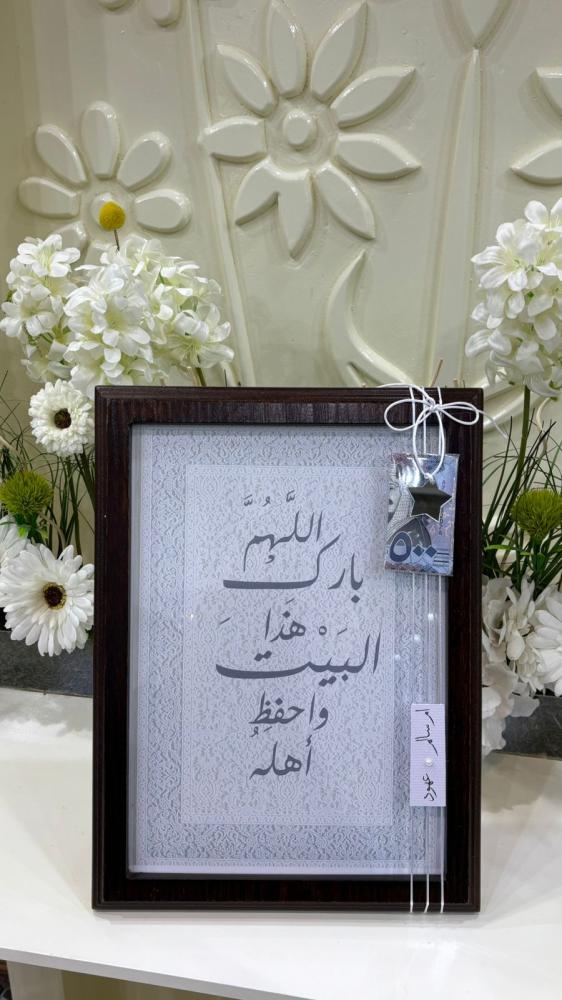 اللَّهُمَّ
بارك
هَذَا
البَيْتَ
واحفظِ
أهلهُ
٥٠٠
ام سالم
عهود